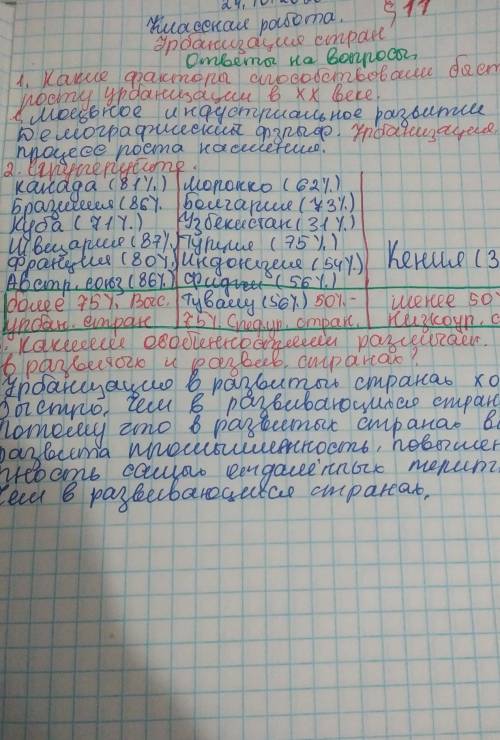 24.10.20
Классная работа. § 11
Урбанизация стран
Ответы на вопросы.
1. Какие факторы способствовали быст
росту урбанизации в XX веке.
1. Мощьное индустриальное развитии
Демографический взрыв. Урбанизация.
процесс роста насиления.
2.
Канада (81%) Морокко (62%)
Бразилия (86% Болгария (73%)
Куба (71%.) Узбекистан (31%)
Швецария (87%) Турция (75%)
Франция (80%) Индонизия (54%) Кения (3
Австр. союз (86%) Фиджи (56%)
более 75%. Выс. Тувалу (56%) 50%- менее 50%
урбан. стран 75%. Средур. стран. Низкоур. с
Какими особенностями различаит.
в развитых и развив. странах?
Урбанизация в развитых странах хо
быстро, чем в развивающихся стран
Потому что в развитых странах в
развита промышленность, повышен
ность самых отдалённых терит
чем в развивающихся странах.